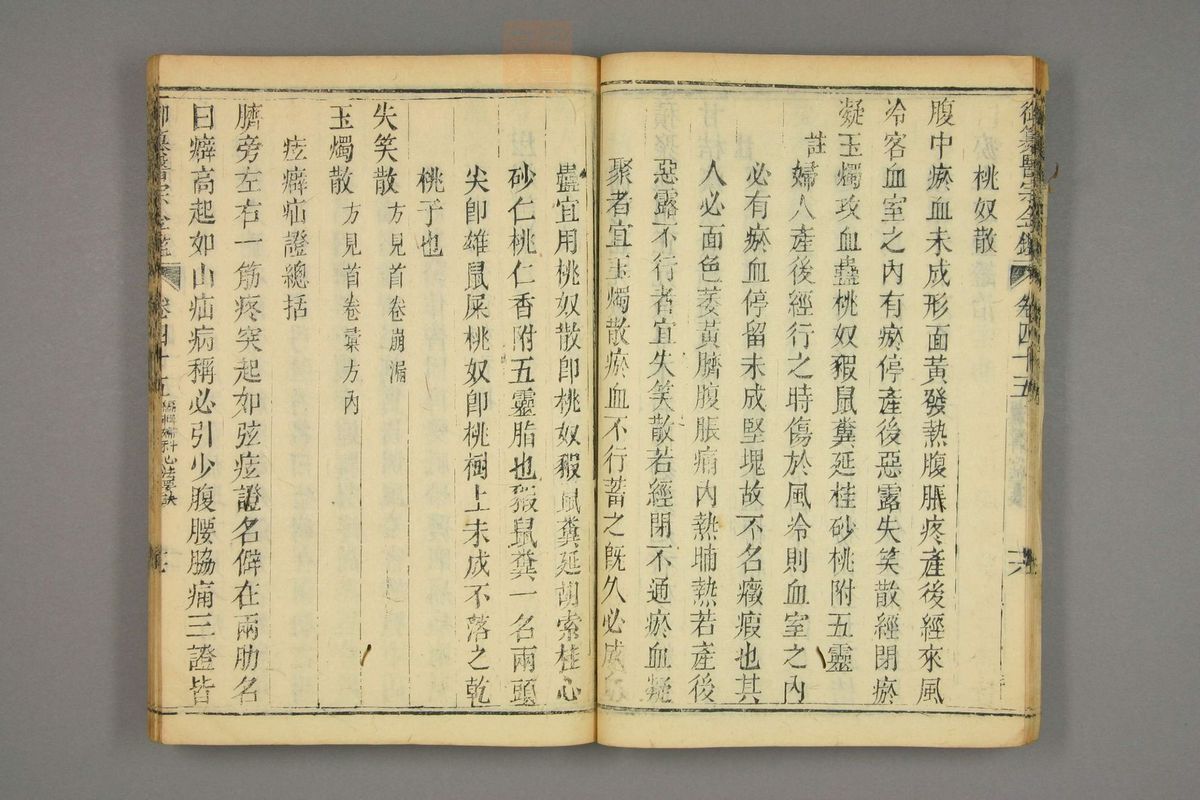 御纂醫宗金鑑 卷四十五 六
桃奴散
腹中瘀血未成形面黃發熱腹脹疼產後經來風
冷客血室之內有瘀停產後惡露失笑散經閉瘀
凝玉燭攻血蠱桃奴豭鼠糞延桂砂桃附五靈
註
婦人產後經行之時傷於風冷則血室之內
必有瘀血停留未成堅塊故不名癥瘕也其
人必面色萎黃臍腹脹痛內熱晡熱若產後
惡露不行者宜失笑散若經閉不通瘀血凝
聚者宜玉燭散瘀血不行蓄之旣久必成血
蠱宜用桃奴散卽桃奴豭鼠糞延胡索桂心
砂仁桃仁香附五靈脂也豭鼠糞一名兩頭
尖卽雄鼠屎桃奴卽桃樹上未成不落之乾
桃子也
失笑散 方見首卷崩漏
玉燭散 方見首卷彙方內
痃癖疝證總括
臍旁左右一筋疼突起如弦痃證名僻在兩肋名
曰癖高起如山疝病稱必引少腹腰脇痛三證皆
御纂醫宗金鑑 卷四十五 編輯婦科心法要訣